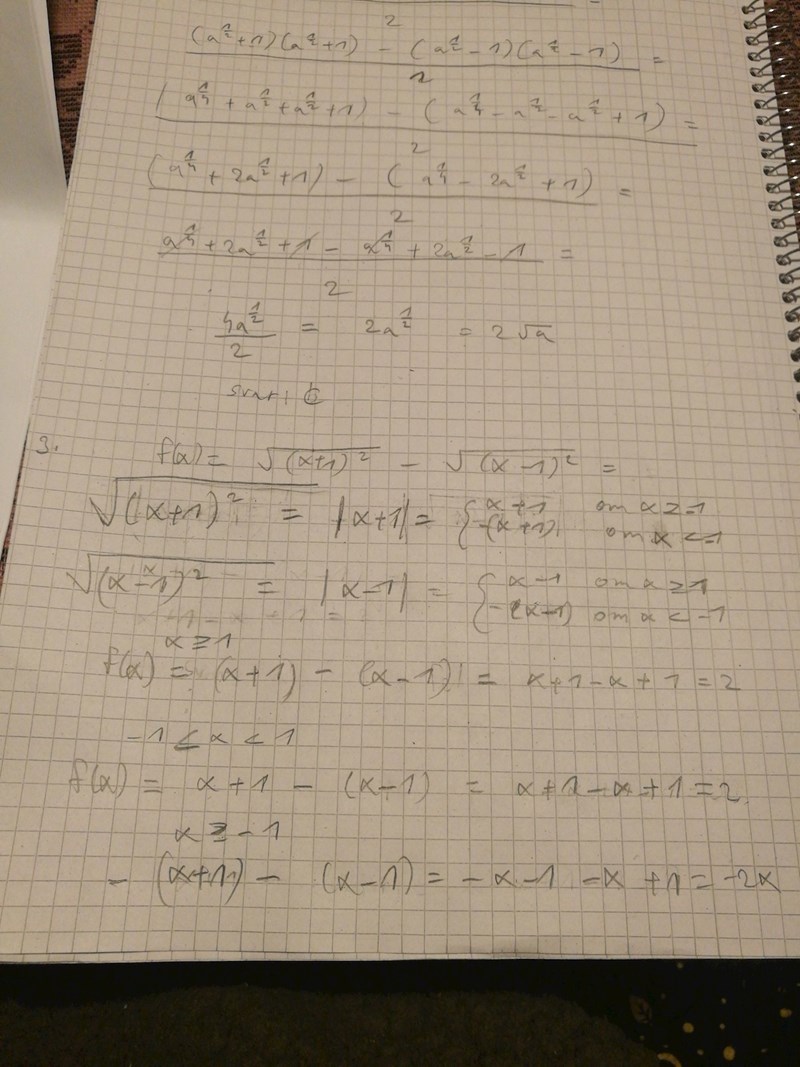 (a^½+1)(a^½+1) - (a^½-1)(a^½-1) =
2
(a^¼ + a^½ + a^½ + 1) - (a^¼ - a^½ - a^½ + 1) =
2
(a^¼ + 2a^½ + 1) - (a^¼ - 2a^½ + 1) =
2
a^¼ + 2a^½ + 1 - a^¼ + 2a^½ - 1 =
2
4a^½/2 = 2a^½ = 2√a
3.
f(x) = √(x+1)² - √(x-1)² =
√(x+1)² = |x+1| = { x+1 om x≥-1
-(x+1) om x<-1
√(x-1)² = |x-1| = { x-1 om x≥1
-(x-1) om x<-1
x≥1
f(x) = (x+1) - (x-1) = x+1-x+1 = 2
-1 ≤ x < 1
f(x) = x+1 - (x-1) = x+1-x+1 = 2
x ≥ -1
- (x+1) - (x-1) = -x-1 -x +1 = -2x